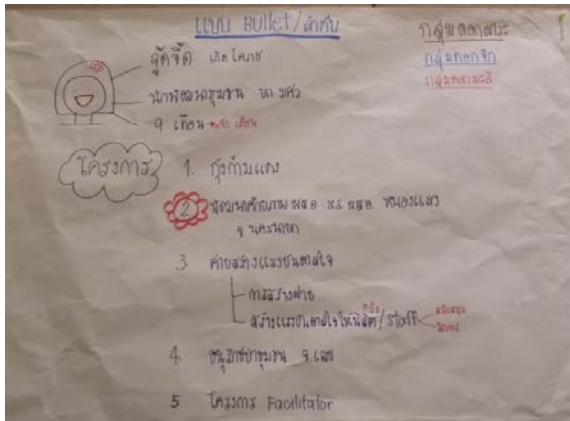 แบบ Bullet/ลำดับ
กลุ่มดอกจิก
กลุ่มดอกมะลิ
จู๊ดจี๊ด เกิดโคราช
นักพัฒนาชุมชน
9 เดือน
โครงการ
1. กุ้งก้ามแดง
2 พัฒนาศักยภาพ หนองแสง
จ นครนายก
3 ค่ายสร้างแรงบันดาลใจ
การสร้างฝาย
สร้างแรงบันดาลใจให้นิสิต / Staff
4. อนุรักษ์ป่าชุมชน จ.เลย
5 โครงการ Facilitator